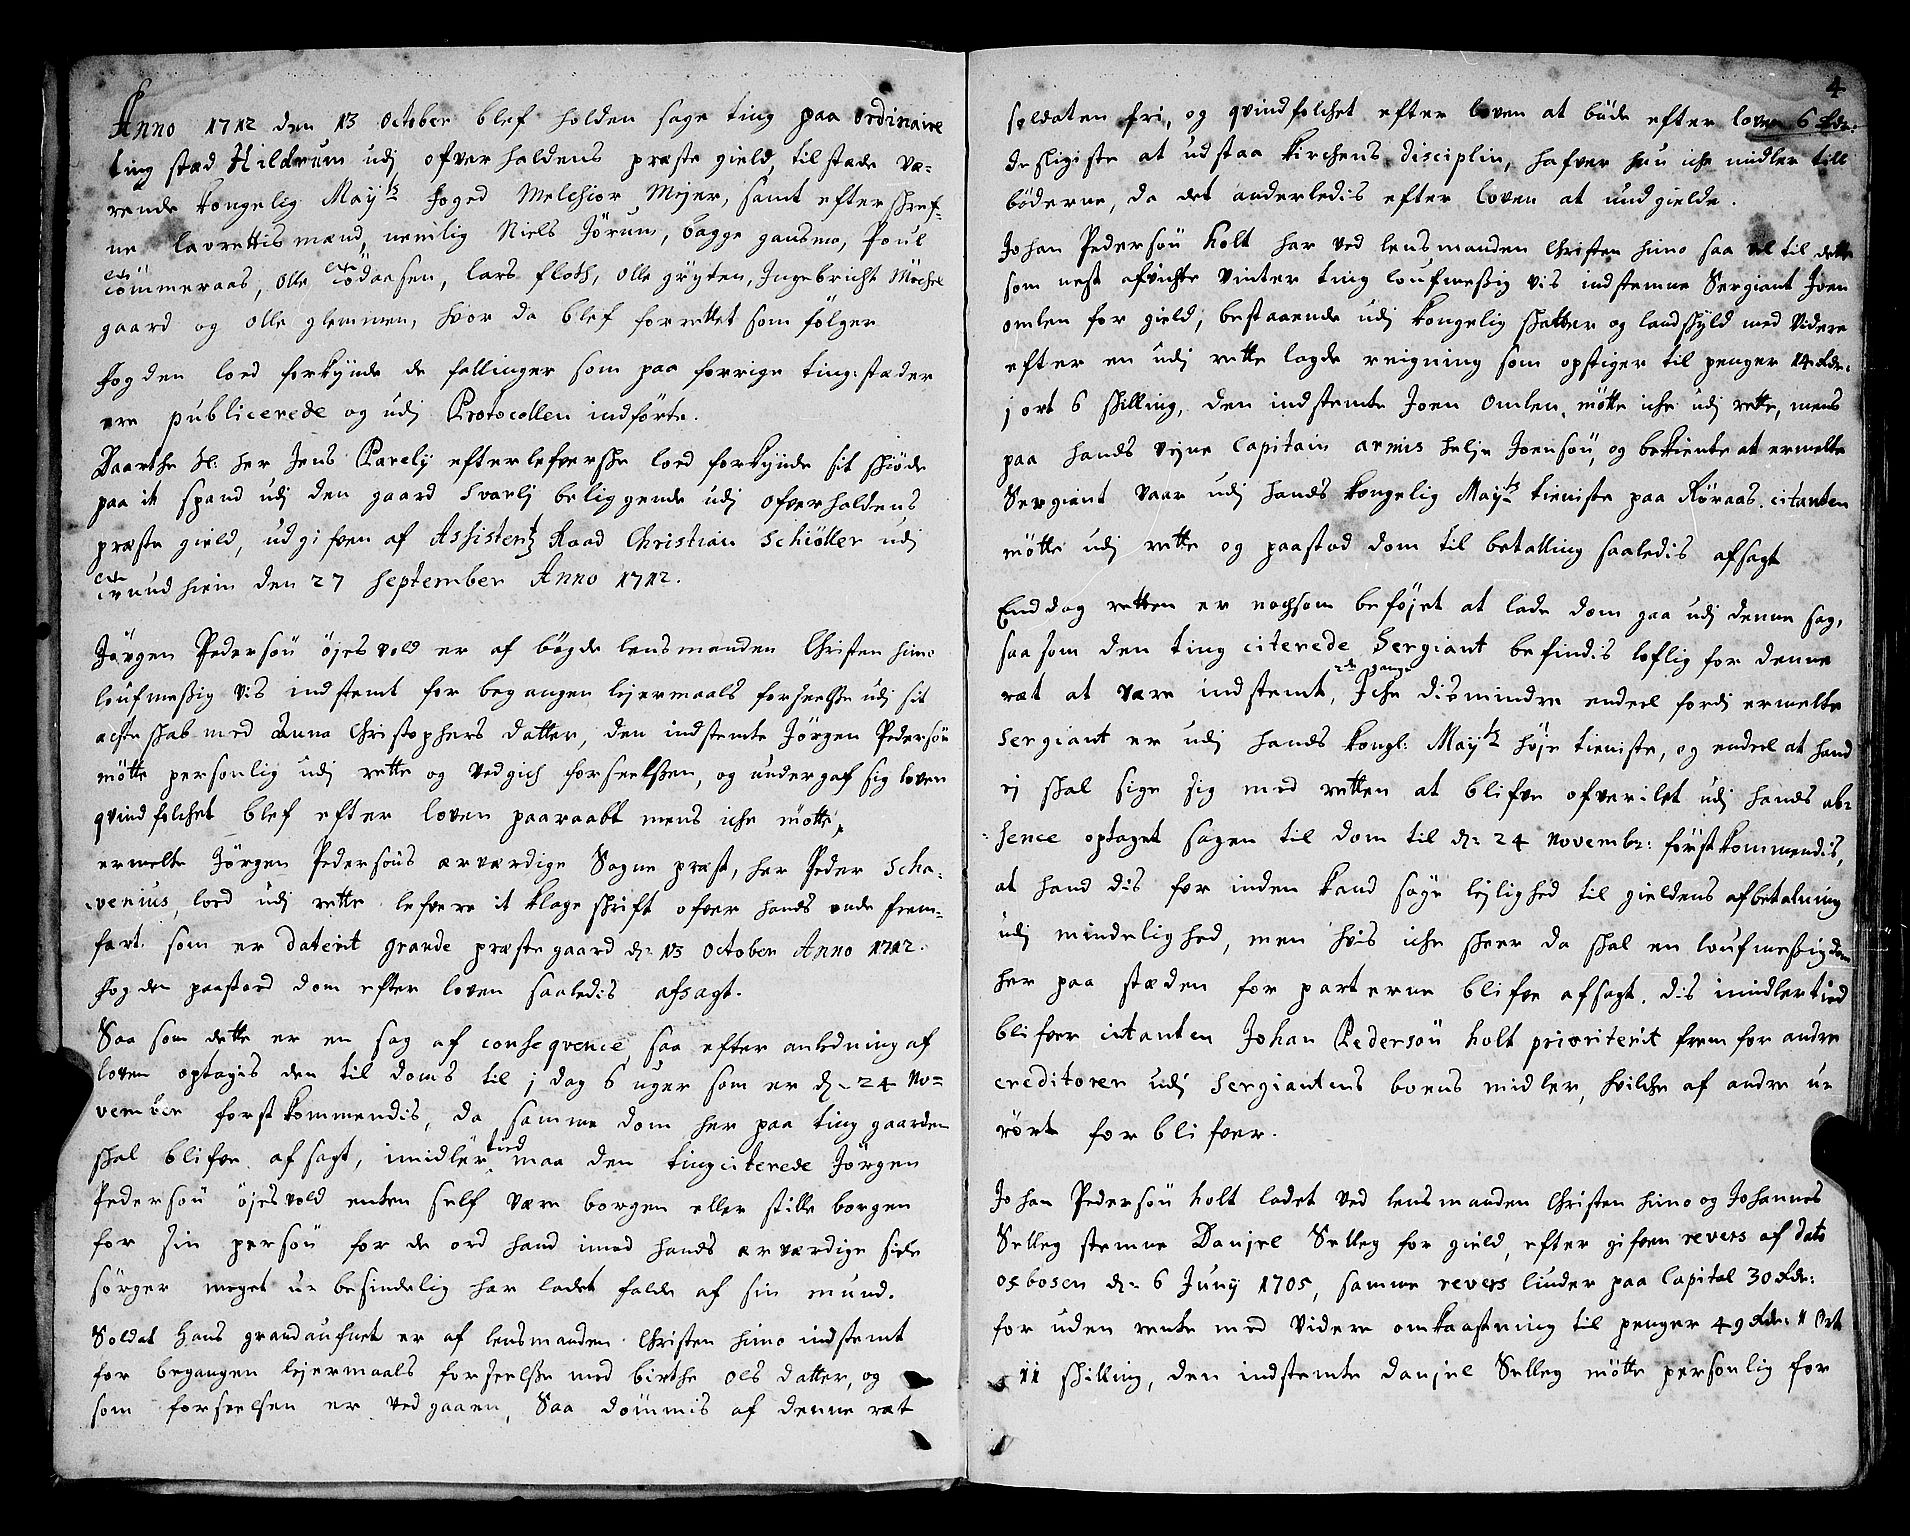 Anno 1712 den 13 October blef holden sage ting paa ordinaire
ting stæd Hildrum udj ofverhaldens præste gield, til stæde væ-
rende kongelig Mayts foged Melchior Mejer, samt efterskref-
ne lavrettismænd, nemlig Niels Jörum, bagge gansmo, Poul
Tömmeraas, Olle Tödaasen, lars floth, olle gryten, Ingebricht Möchel
gaard og olle glemmen, hvor da blef forrettet som fölger
fogden loed forkynde de fallinger som paa forrige ting stæder
ere publicerede og udj Protocollen indförte.
Daarthe Sl: her Jens Parelÿ efterlefverske loed forkÿnde sit skiöde
paa it spand udj den gaard Svarlj beliggende udj ofverhaldens
præste gield, udgifven af Assistentz Raad Christian Schiöller udj
Trundhiem den 27 September Anno 1712.
Jörgen Pedersön öjesvold er af bögde lensmanden Christen himo
loufmessig vis indstemt for begangen lejermaals forseelsse udj sit
ægteskab med Anna Christophers datter, den indstemte Jörgen Pedersön
mötte personlig udj rette og vedgich forseelssen, og undergaf sig loven
qvindfolchet blef efter loven paaraabt mens iche mötte,
ermelte Jörgen Pedersöns ærværdige Sogne præst, her Peder Scha-
venius, loed udj rette lefvere it klage skrift ofver hands onde frem-
fart som er daterit grande præstegaard d: 13 October Anno 1712.
fogden paastoed dom efter loven saaledis afsagt.
Saa som dette er en sag af conseqvence, saa efter anledning af
loven optagis den til doms til j dag 6 uger som er d: 24 No-
vember forstkommendis, da samme dom her paa ting gaarden
skal blifve afsagt, imidlertied maa den tingciterede Jörgen
Pedersön öjesvold enten self være borgen eller stille borgen
for sin persön for de ord hand imod hands ærværdige siele
sörger meget u-besindelig har ladet falde af sin mund.
Soldat Hans grandaufnet er af lensmanden Christen himo indstemt
for begangen lejermaals forseelsse med birthe Ols datter, og
som forseelsen er vedgaaen, Saa dömmis af denne ræt
4
soldaten fri, og qvindfolchet efter loven at böde efter loven 6 Rdr:
desligiste at udstaa kirchens disciplin, hafver hun iche midler till
böderne, da det anderledis efter loven at undgielde.
Johan Pedersön holt har ved lensmanden Christen himo saa vel til dette
som nest afvichte vinter ting loufmessig vis indstemne Sergiant Joen
omlen for gield, bestaaende udj kongelig skatter og landskyld med videre
efter en udj rette lagde reigning som opstiger til penger 14 Rdr:
j ort 6 skilling, den indstemte Joen Omlen mötte iche udj rette, mens
paa hands vejne Capitain armis helje Joensön, og bekiente at ermelte
Sergiant vaar udj hands kongelig Mayts tieniste paa Röraas. citanten
mötte udj rette og paastod dom til betalling saaledis afsagt
Enddog retten er nochsom beföjet at lade dom gaa udj denne sag,
saasom den ting citerede Sergiant befindis loflig for denne
ræt at være indstemt, 2de gange Iche dismindre endeel fordj ermelte
Sergiant er udj hands kongl: Mayts höje tieniste, og endeel at hand
ej skal sige sig med retten at blifve ofverilet udj hands ab-
sence optaget sagen til dom til d: 24 Novembr: förstkommendis,
at hand dis for inden kand söge lejlighed til gieldens afbetalning
udj mindelighed, men hvis iche skeer da skal en loufmessig dom
her paa stæden for parterne blifve afsagt. dis imidlertied
blifver citanten Johan Pedersön holt prioriterit frem for andre
creditorer udj Sergiantens boens midler, hvilche af andre u-
rört forblifver.
Johan Pedersön holt ladet ved lensmanden Christen himo og Johannes
Selleg stemne Danjel Selleg for gield, efter gifven revers af dato
ofbosen d: 6 Junÿ 1705, samme revers liuder paa Capital 30 Rdr:
for uden rente med videre omkaastning til penger 49 Rdr: 1 Ort
11 skilling, den indstemte danjel Selleg mötte personlig for